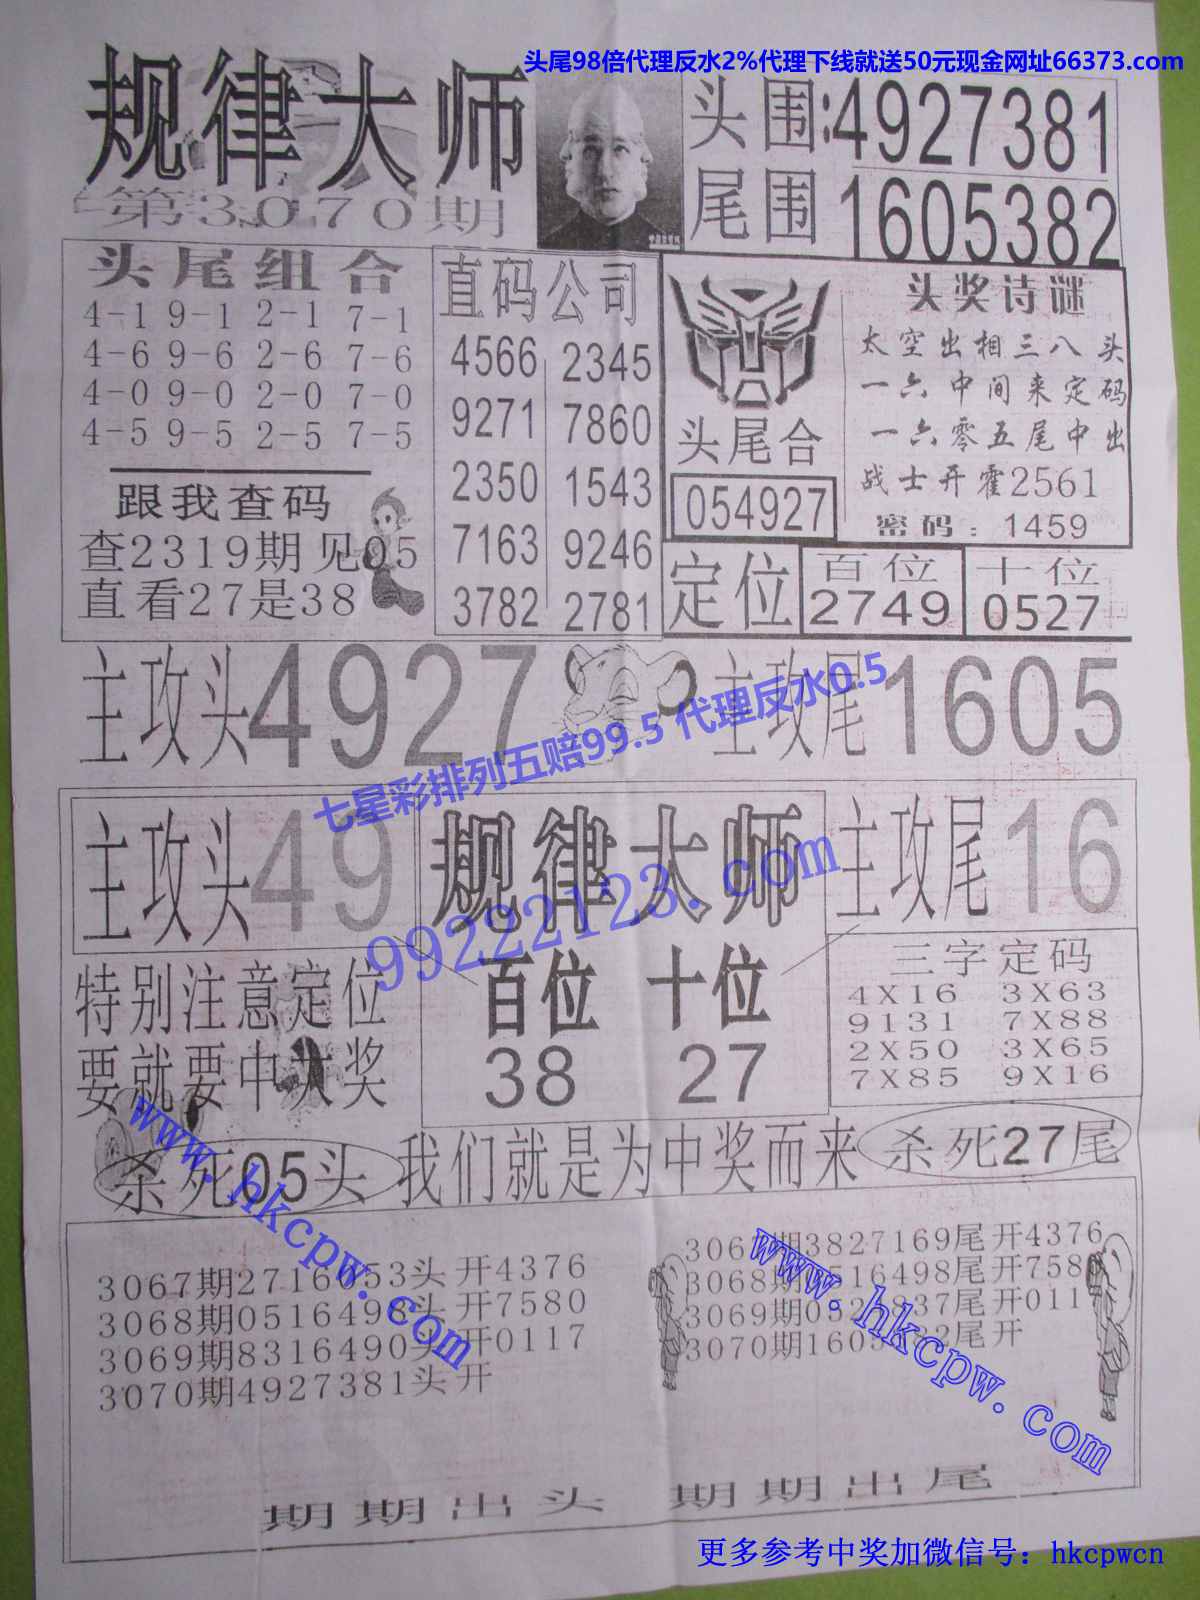 头尾98倍代理反水2%代理下线就送50元现金网址66373.com
规律大师
第3070期
头围:4927381
尾围 1605382
头尾组合
4-1 9-1 2-1 7-1
4-6 9-6 2-6 7-6
4-0 9-0 2-0 7-0
4-5 9-5 2-5 7-5
跟我查码
查2319期见05
直看27是38
直码公司
4566 2345
9271 7860
2350 1543
7163 9246
3782 2781
头尾合
054927
头奖诗谜
太空出相三八头
一六中间来定码
一六零五尾中出
战士开霍2561
密码:1459
定位
百位
2749
十位
0527
主攻头4927
主攻尾1605
七星彩排列五赔99.5 代理反水0.5
主攻头49
规律大师
主攻尾16
99222123.com
百位 十位
38 27
特别注意定位
要就要中大奖
三字定码
4X16 3X63
9131 7X88
2X50 3X65
7X85 9X16
杀死05头
我们就是为中奖而来
杀死27尾
www.hkcpw.com
3067期2716053头开4376
3068期0516498头开7580
3069期8316490头开0117
3070期4927381头开
www.hkcpw.com
3067期3827169尾开4376
3068期0516498尾开758
3069期052 837尾开011
3070期1605382尾开
期期出头 期期出尾
更多参考中奖加微信号：hkcpwcn